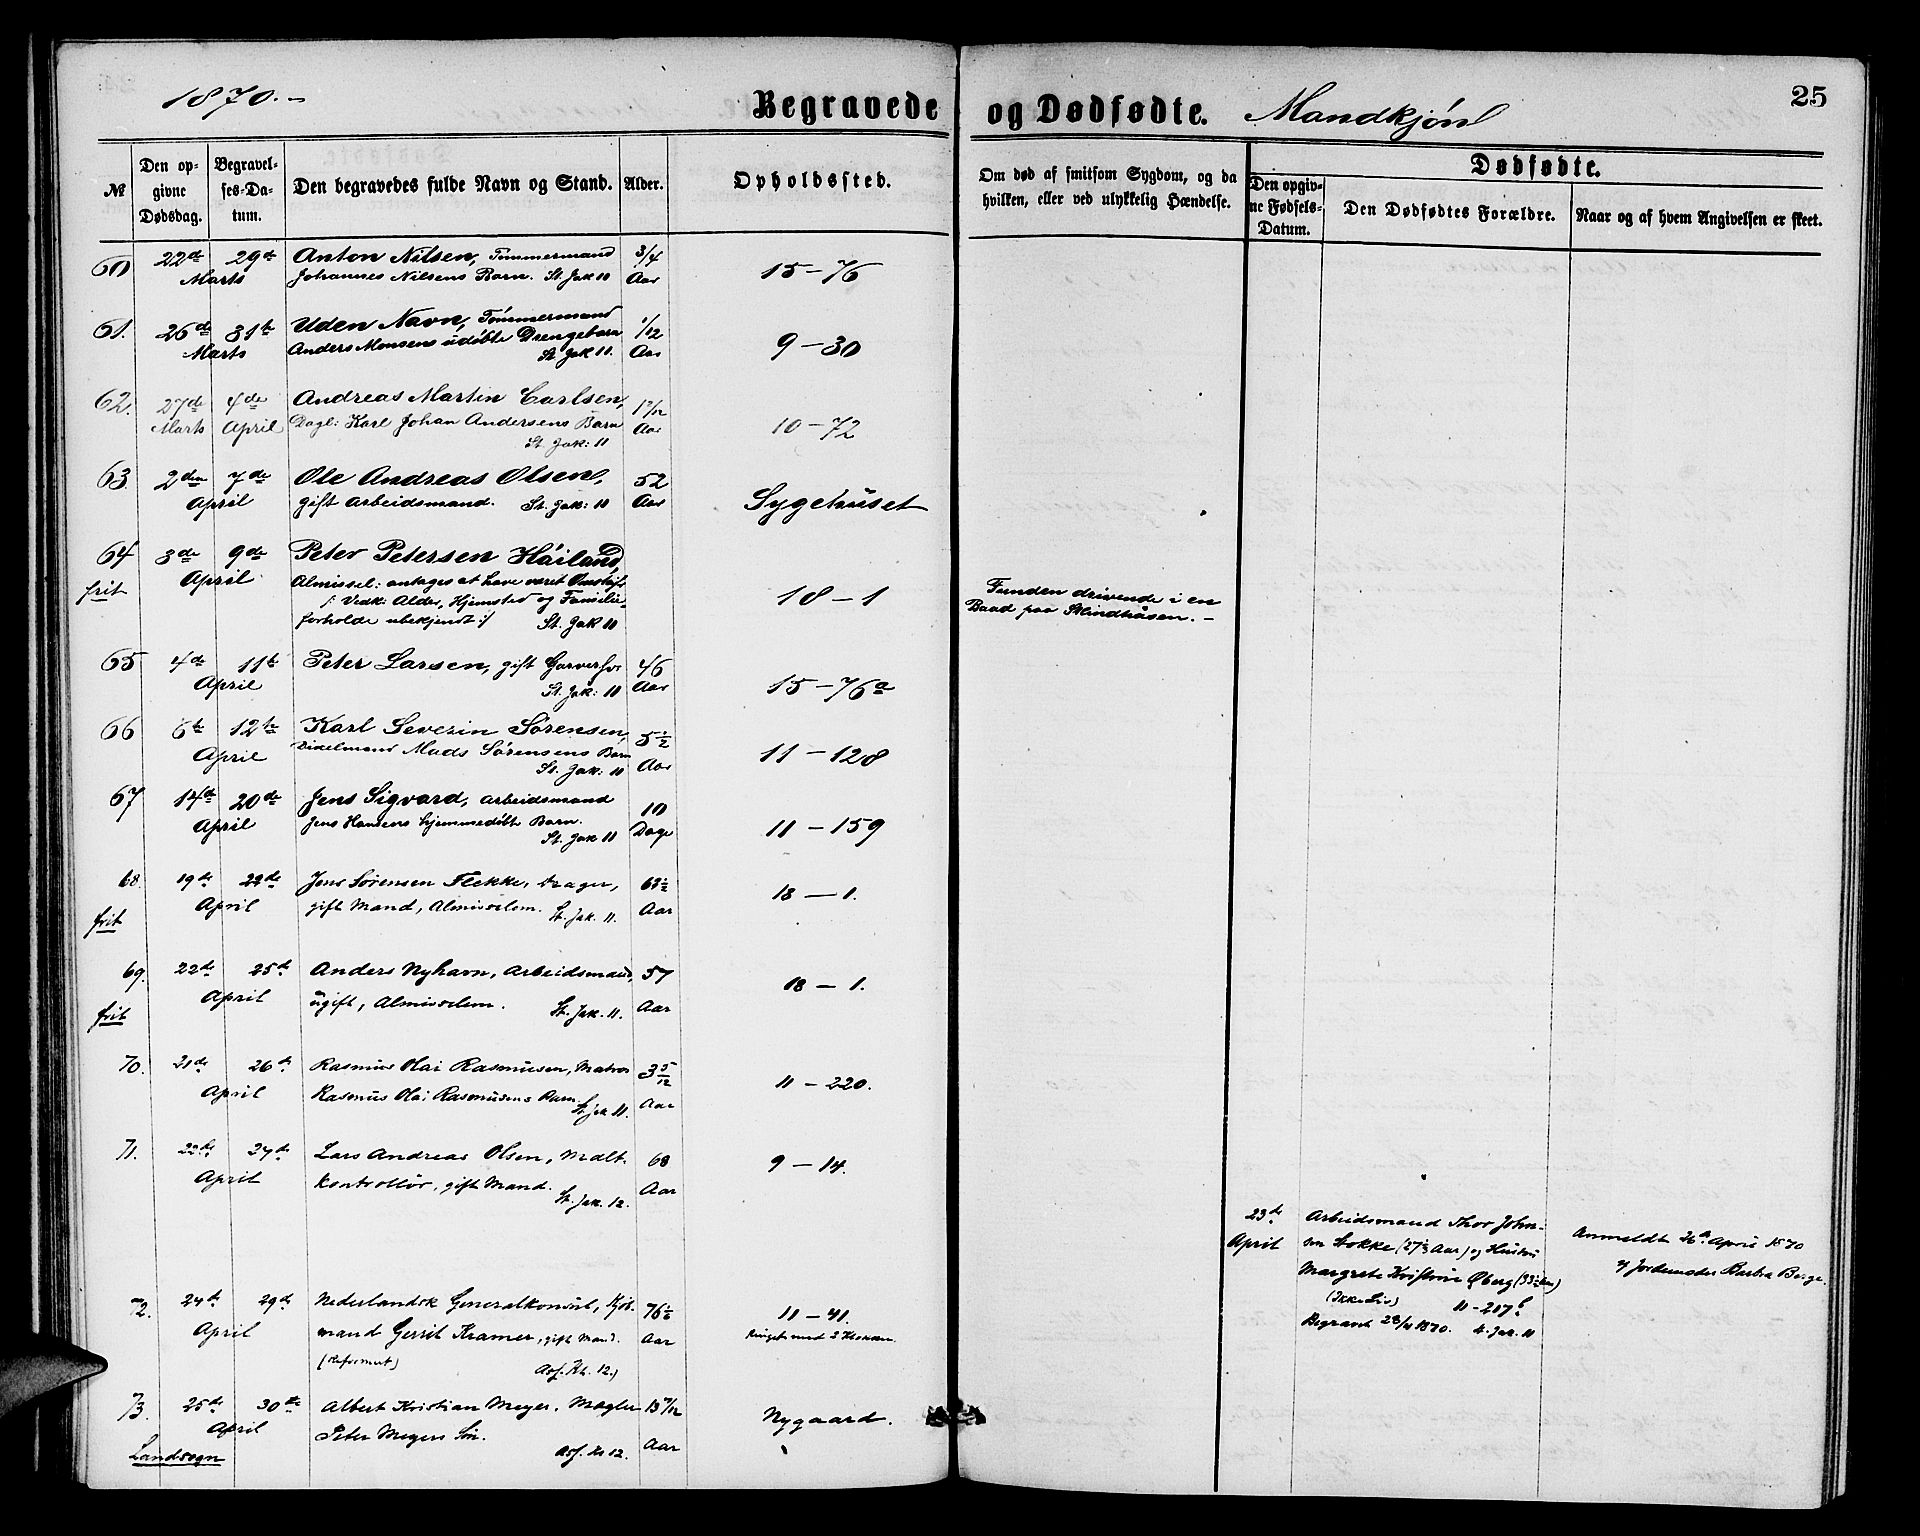 1870.-
Begravede og Dødfødte. Mandkjøn
25
№
Den opgivne Dødsdag.
Begravelses-Datum.
Den begravedes fulde Navn og Stand.
Alder.
Opholdssted.
Om død af smitsom Sygdom, og da hvilken, eller ved ulykkelig Hændelse.
Dødfødte.
Den opgivne Fødsels-Datum.
Den Dødfødtes Forældre.
Naar og af hvem Angivelsen er skeet.
60 22de 29de Anton Nilsen, Tømmermand 3/4
Marts Johannes Nilsens Barn. St. Jak 11 Aar 15-76
61. 26de 31te Uden Navn, Tømmermand 1/12
Marts Anders Monsens udøbte Drengebarn Aar 9-30
St. Jak 11.
62. 27de 4de Andreas Martin Carlsen,
Marts April Dagl: Karl Johan Andersens Barn Aar 10-72
St. Jak: 11
63 2den 7de Ole Andreas Olsen, 52
April gift Arbeidsmand. St. Jak: 11 Aar Sygehuset
64 3de 9de Peter Petersen Høiland,
frit April Almissel: antages at have været
/: Vedk: Alder, Hjemsted og Familie- 18-1
forholde ubekjendt :/ St. Jak 11
Funden drivende i en
Baad paa
65 4de 11te Peter Larsen, gift Garversv 46
April St. Jak: 11 Aar 15-76a
66 6te 12te Karl Severin Sørensen, 5½
April Mads Sørensens Barn
St. Jak: 11 Aar 11-128
67 14de 20de Jens Sigvard, Arbeidsmand 10
April Jens Hansens hjemmedøbte Barn. Dage 11-159
St. Jak 11
68. 19de 22de Jens Sørensen Flekke, Drager, 63½
frit April gift Mand, Almisselem. St. Jak. 11. Aar 18-1.
69. 22de 25de Anders Nyhavn, Arbeidsmand, 57
frit April ugift, Almisselem. St. Jak. 11. Aar 18-1.
70. 21de 26de Rasmus Olai Rasmussen, Matros 3 5/12
April Rasmus Olai Rasmussens Barn. St. Jak 11. Aar 11-220.
71. 22de 27de Lars Andreas Olsen, Malt- 68
April kontrollør, gift Mand. St. Jak. 12. Aar 9-14.
23de Arbeidsmand Thor John-
April sen Stokke (27½ Aar) og Hustru
Margrete Kristine Øberg (33½ Aar)
(Ikke Liv) 11-217
Begravet 28/4 1870. St. Jak. 11
Anmeldt 26de April 1870
af Jordemoder Barbra
72. 24de 29de Nederlandsk Generalkonsul, Kjøb- 76½
April mand Gerrit Kramer, gift Mand. Aar 11-41.
(Reformert) Asf. Kh. 12.) Ringet med 2 Klokker
73. 25de 30te Albert Kristian Meyer, Mægler 13 7/12
April Peter Meyers Søn. Aar Nygaard.
Landsogn Asf. Kh 12.